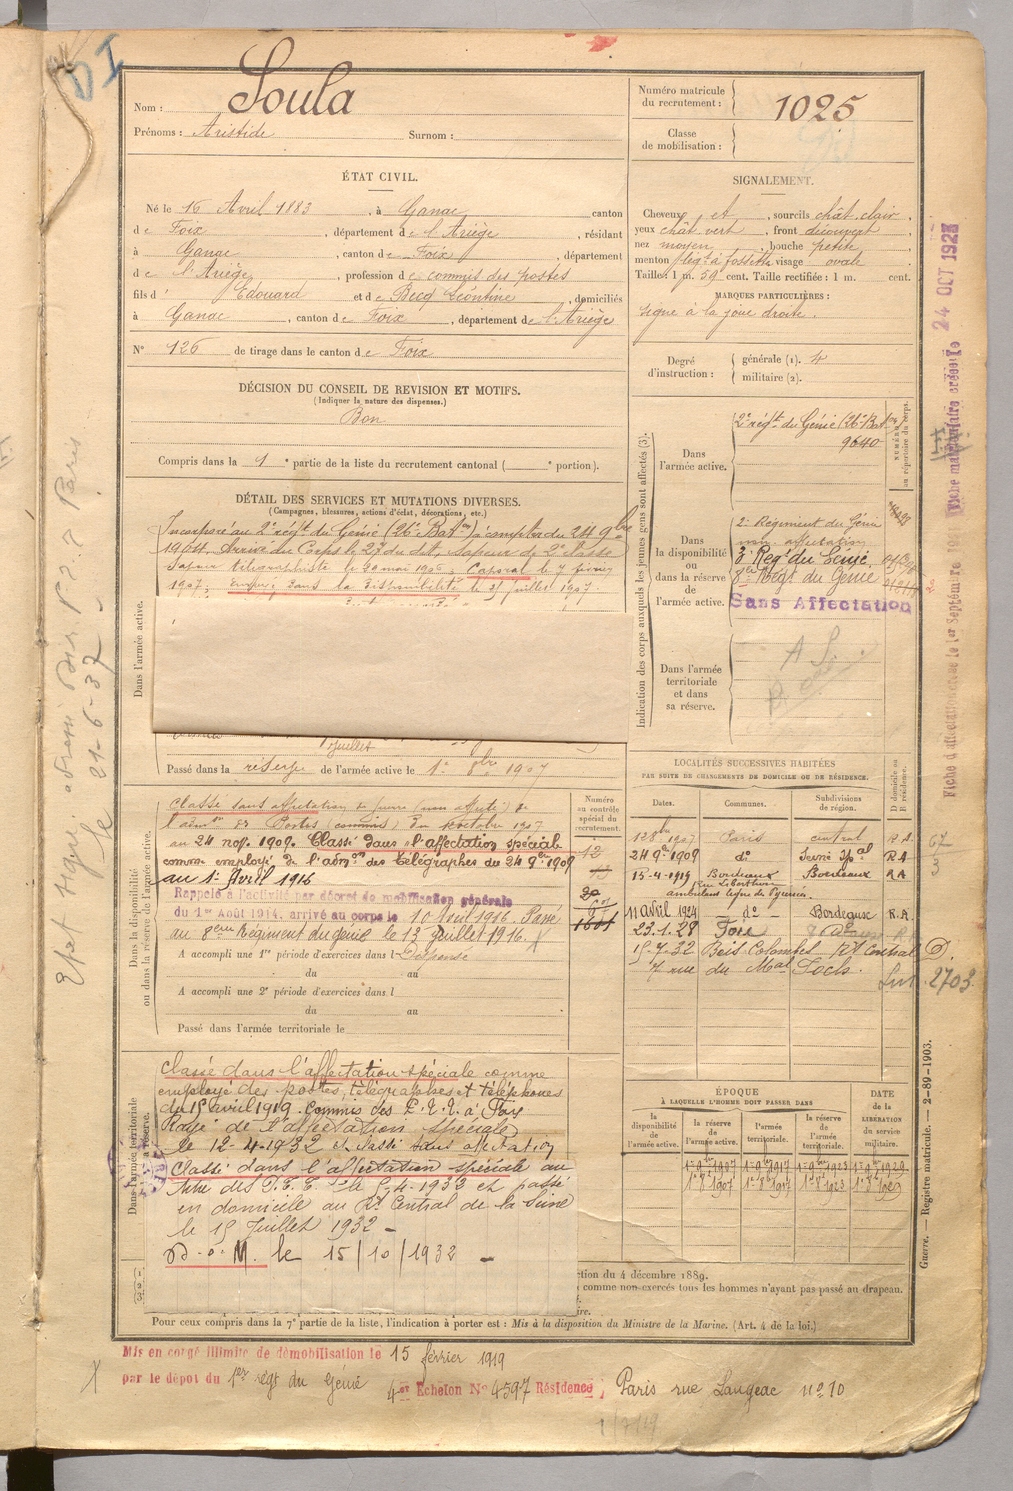 D I
Nom : Soula
Prénoms : Aristide Surnom :
Numéro matricule du recrutement : 1025
Classe de mobilisation :
ÉTAT CIVIL.
Né le 16 Avril 1883, à Ganac, canton
de Foix, département de l'Ariège, résidant
à Ganac, canton de Foix, département
de l'Ariège, profession de commis des postes
fils d' Edouard et de Becq Léontine, domiciliés
à Ganac, canton de Foix, département de l'Ariège
N° 126 de tirage dans le canton de Foix
SIGNALEMENT.
Cheveux et, sourcils chât. clair,
yeux chât vert, front découvert,
nez moyen, bouche petite
menton à fossette visage ovale
Taille : 1 m. 59 cent. Taille rectifiée : 1 m. cent.
MARQUES PARTICULIÈRES :
signe à la joue droite.
Degré d'instruction :
générale (1). 4
militaire (2).
DÉCISION DU CONSEIL DE REVISION ET MOTIFS.
(Indiquer la nature des dispenses.)
Bon
Compris dans la 1e partie de la liste du recrutement cantonal ( e portion).
DÉTAIL DES SERVICES ET MUTATIONS DIVERSES.
(Campagnes, blessures, actions d'éclat, décorations, etc.)
Dans l'armée active.
Incorporé au 2e régt du Génie (26e Baton) à compter du 24 9bre
1904. Arrivé au Corps le 27 du dit, sapeur de 2e classe
Sapeur télégraphiste le 20 mai 1906. Caporal le 7 février
1907. Envoyé dans la disponibilité le 31 juillet 1907.
juillet
Passé dans la réserve de l'armée active le 1er 8bre 1907
Indication des corps auxquels les jeunes gens sont affectés (3).
NUMÉROS au répertoire du corps.
Dans l'armée active.
2e régt du Génie (26e Bat.
9640
Dans la disponibilité ou dans la réserve de l'armée active.
2e Régiment du Génie
non affectation
Régt du Génie.
8em Régt du Génie
Sans Affectation
Dans l'armée territoriale et dans sa réserve.
LOCALITÉS SUCCESSIVES HABITÉES
PAR SUITE DE CHANGEMENTS DE DOMICILE OU DE RÉSIDENCE.
Dates. Communes. Subdivisions de région. D domicile ou R résidence.
12 8bre 1907 Paris central R.A.
24 9bre 1909 do Seine Rpal RA
15-4-1919 Bordeaux Bordeaux RA
11 avril 1924 — do — Bordeaux R.A.
23.1.28 Foix
15-7-32 Bois Colombes Rt Central D.
7 rue du Mal Foch.
2703
Dans la disponibilité ou dans la réserve de l'armée active.
Numéro au contrôle spécial du recrutement.
Classé sans affectation
au 24 nov. 1909. Classé dans l'affectation spéciale
comme employé de l'admon des télégraphes du 24 9bre 1909
au 1er Avril 1916
Rappelé à l'activité par décret de mobilisation générale
du 1er Août 1914. arrivé au corps le 10 Avril 1916. Passé
au 8eme Régiment du génie le 13 Juillet 1916.
A accompli une 1re période d'exercices dans l Dispense
du au
A accompli une 2e période d'exercices dans l
du au
Passé dans l'armée territoriale le
Dans l'armée territoriale
Classé dans l'affectation spéciale comme
employé des postes, télégraphes et téléphones
du 15 avril 1919. Commis des P.T.T. à Foix
Rayé de l'affectation spéciale
le 12-4-1932 et classé sans affectation
Classé dans l'affectation spéciale au
titre des P.T.T. le 5-4-1932 et passé
en domicile au Rt Central de la Seine
le 15 Juillet 1932 —
le 15/10/1932 —
ÉPOQUE
À LAQUELLE L'HOMME DOIT PASSER DANS
la disponibilité de l'armée active.
la réserve de l'armée active.
l'armée territoriale.
la réserve de l'armée territoriale.
DATE de la LIBÉRATION du service militaire.
ction du 4 décembre 1889.
comme non-exercés tous les hommes n'ayant pas passé au drapeau.
Pour ceux compris dans la 7e partie de la liste, l'indication à porter est : Mis à la disposition du Ministre de la Marine. (Art. 4 de la loi.)
Guerre. — Registre matricule. — 2-89-1903.
Mis en congé illimité de démobilisation le 15 février 1919
par le dépôt du 1er régt du Génie 4er Echelon N° 4597 Résidence : Paris rue Langeac no 10
24 OCT 1927
le 21-6-37